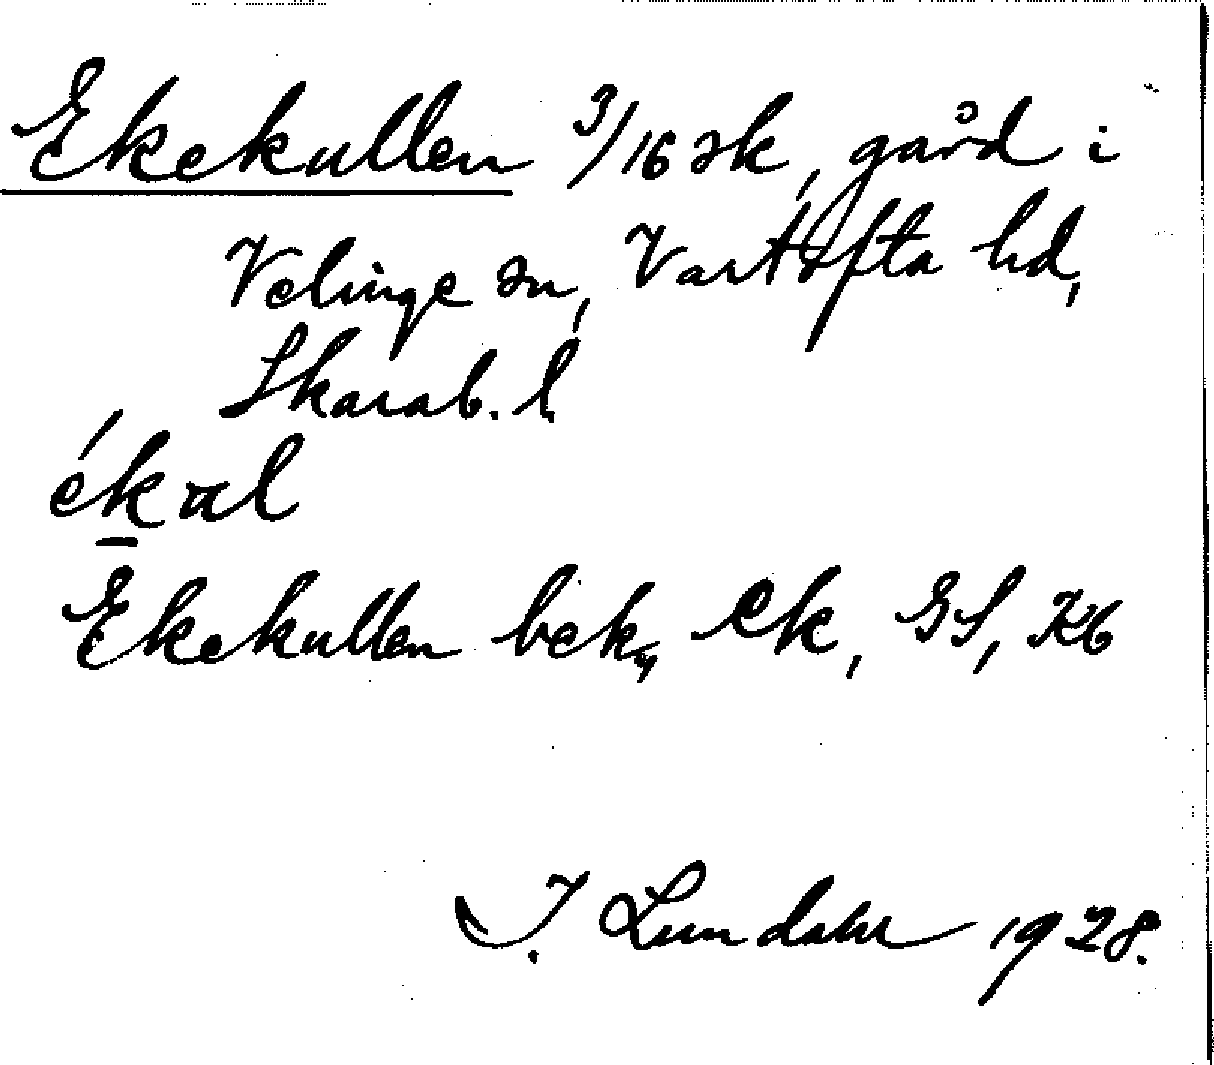 Ekekullen 3/16 sk, gård i
Velinge sn, Vartofta hd,
Skarab. l.
ékul
Ekekullen bek, Ek, GS, Kb
I. Lundahl 1928.